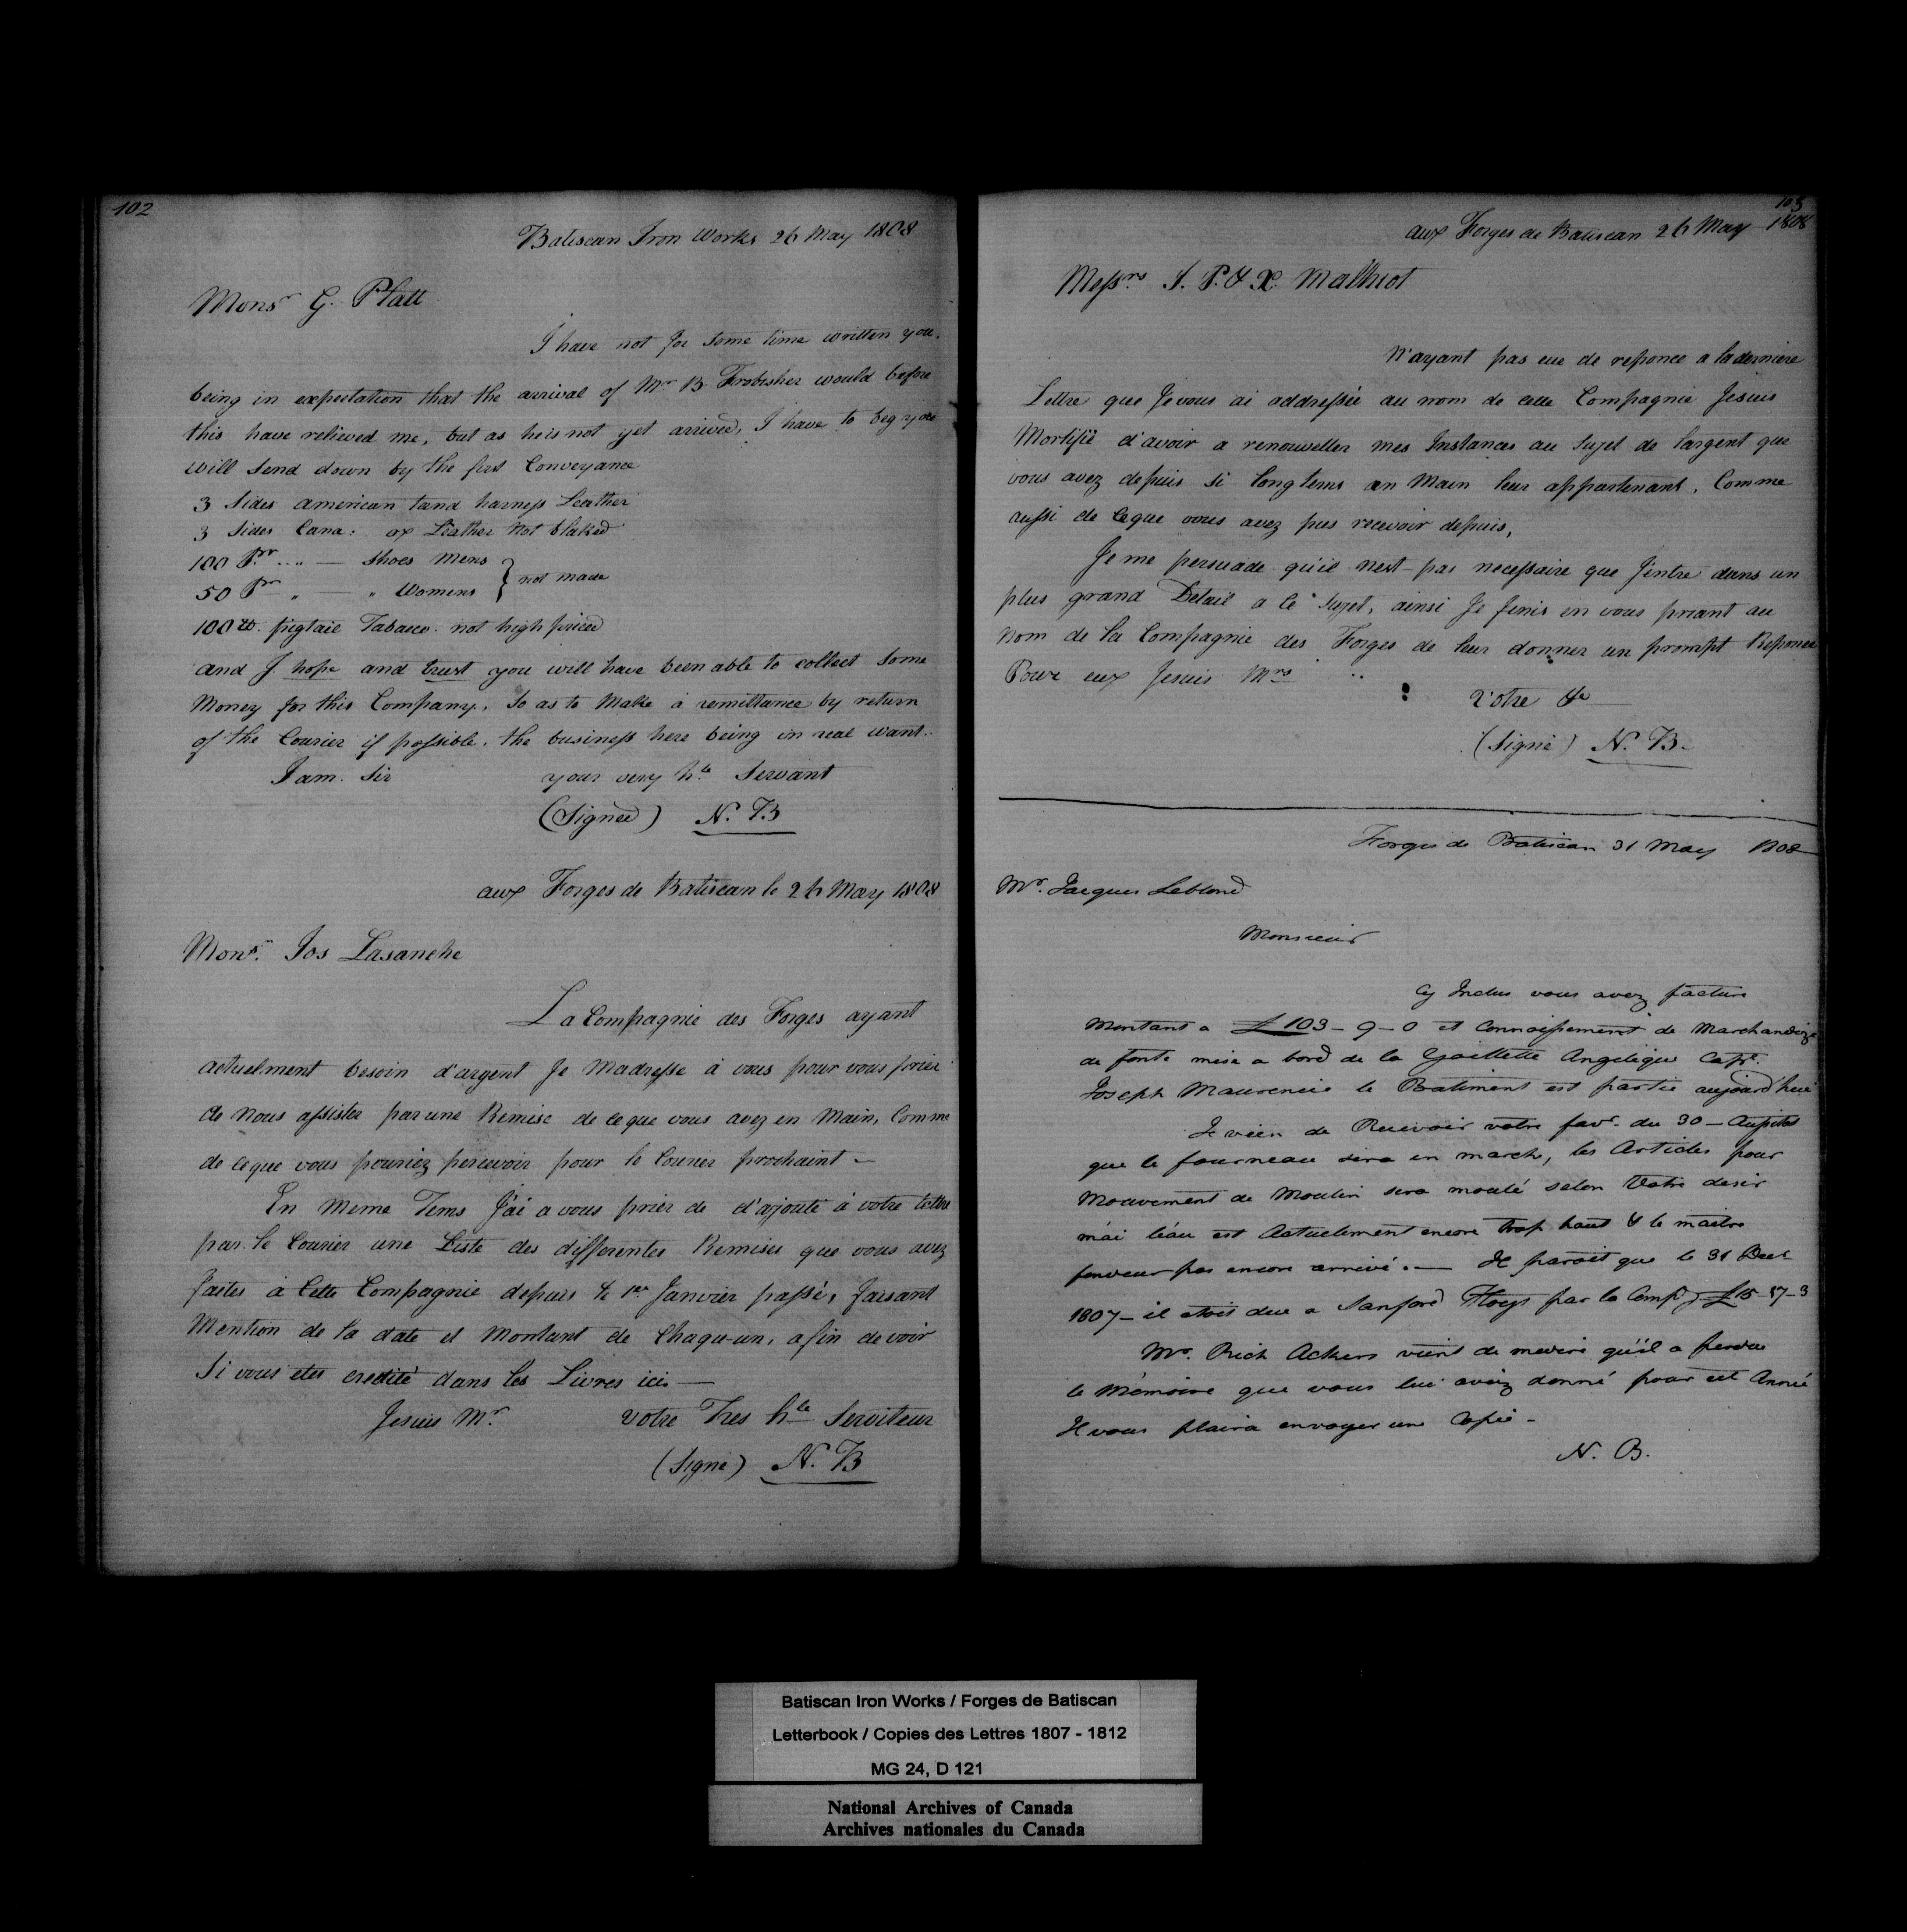 102
Batiscan Iron Works 26 May 1808
Monsr G. Platt
I have not for some time written you,
being in expectation that the arrival of Mr B. Frobisher would before
this have relieved me, but as he is not yet arrived, I have to beg you
will send down by the first Conveyance
3 Sides american tand harness Leather
3 Sides Cana: ox Leather Not blaked
100 Pr. .. " — Shoes Mens
50 Pr " — " Womens } not made
100 lb. pigtail Tabacco. not high priced
and I hope and trust you will have been able to collect some
Money for this Company, so as to Make a remittance by return
of the Courier if possible, the business here being in real want.
I am. Sir your very hle Servant
(Signed) N. B
aux Forges de Batiscan le 26 May 1808
Monsr. Jos Lasanehe
La Compagnie des Forges ayant
actuelment besoin d'argent Je Madresse à vous pour vous prier
de nous assister par une Remise de ce que vous avez en Main, Comme
de ce que vous pouriez percevoir pour le Courier prochaint —
En meme Tems J'ai a vous prier de d'ajouté à votre lettre
par le Courier une Liste des differentes Remises que vous avez
faites à Cette Compagnie depuis le 1er Janvier passé, faisant
Mention de la date et Montant de Chaqu-un, afin de voir
Si vous etes credité dans les Livres ici —
Jesuis Mr. Votre Tres hle Serviteur
(Signé) N. B
103
aux Forges de Batiscan 26 May 1808
Messrs. S. P. & X. Malhiot
N'ayant pas eue de reponce a la derniere
Lettre que Je vous ai addressée au nom de cette Compagnie Jesuis
Mortifié d'avoir a renouveller mes Instances au Sujet de largent que
vous avez depuis si longtems en Main leur appartenant, Comme
aussi de Ceque vous avez pus recevoir depuis,
Je me persuade qu'il nest pas necessaire que J'intre dans un
plus grand Détail a le Sujet, ainsi Je finis en vous priant au
Nom de la Compagnie des Forges de leur donner un prompt Reponce
Pour eux Jesuis Mrs
Votre &c
(Signé) N. B.
Forges de Batiscan 31 May 1808
Mr. Jacques Leblond
Monsieur
Cy Inclus vous avez facture
Montant a £103-9-0 et Connoissement de Marchandize
de fonte mise a bord de la Goillette Angelique Capt.
Joseph le Batiment est partie aujourd'hui
Je vien de Recevoir votre favr. du 30 — Aupitot
que le fourneau sera en march, les Articles pour
Mouvement de Moulin sera moulé selon Votre desir
mai léau est Actuelement encore trop haut & le maitre
fondeur pas encore arrivé. — Il paroit que le 31 Decr
1807 — il etoit due a Sanford Hoyt par la Comp £15-17-3
Mr. Rich Ackers vient de medire qu'il a perdu
le Mémoire que vous lui aviez donné pour cet Année
Il vous plaira envoyer une Copie —
N. B.
Batiscan Iron Works / Forges de Batiscan
Letterbook / Copies des Lettres 1807 - 1812
MG 24, D 121
National Archives of Canada
Archives nationales du Canada